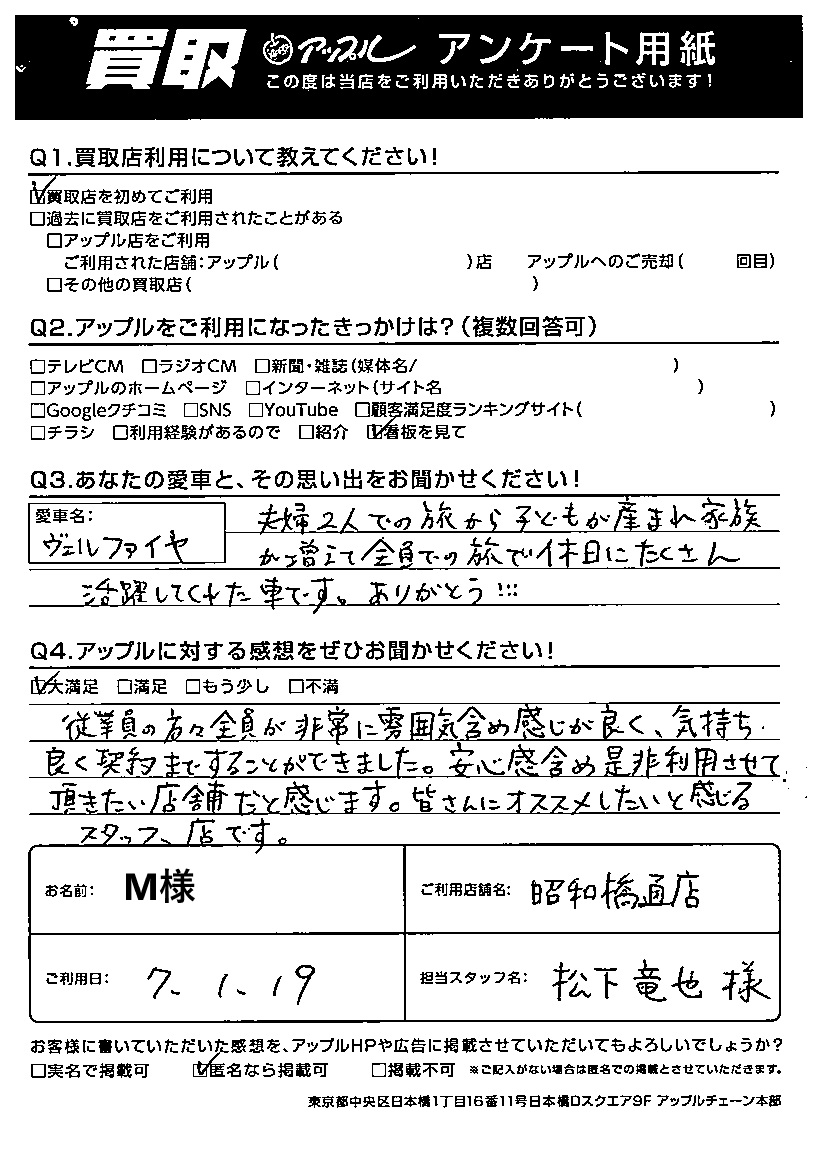 買取 アップル アンケート用紙
この度は当店をご利用いただきありがとうございます!
Q1.買取店利用について教えてください!
☑買取店を初めてご利用
□過去に買取店をご利用されたことがある
□アップル店をご利用
ご利用された店舗:アップル( )店 アップルへのご売却( 回目)
□その他の買取店( )
Q2.アップルをご利用になったきっかけは?(複数回答可)
□テレビCM □ラジオCM □新聞・雑誌(媒体名/ )
□アップルのホームページ □インターネット(サイト名 )
□Googleクチコミ □SNS □YouTube □顧客満足度ランキングサイト( )
□チラシ □利用経験があるので □紹介 ☑看板を見て
Q3.あなたの愛車と、その思い出をお聞かせください!
愛車名:
ヴェルファイヤ
夫婦2人での旅から子どもが産まれ家族
が増えて全員での旅で休日にたくさん
活躍してくれた車です。ありがとう!!!
Q4.アップルに対する感想をぜひお聞かせください!
☑大満足 □満足 □もう少し □不満
従業員の方々全員が非常に雰囲気含め感じが良く、気持ち
良く契約まですることができました。安心感含め是非利用させて
頂きたい店舗だと感じます。皆さんにオススメしたいと感じる
スタッフ、店です。
お名前: M様
ご利用店舗名: 昭和橋通店
ご利用日: 7. 1. 19
担当スタッフ名: 松下竜也様
お客様に書いていただいた感想を、アップルHPや広告に掲載させていただいてもよろしいでしょうか?
□実名で掲載可 ☑匿名なら掲載可 □掲載不可 ※ご記入がない場合は匿名での掲載とさせていただきます。
東京都中央区日本橋1丁目16番11号日本橋Dスクエア9F アップルチェーン本部